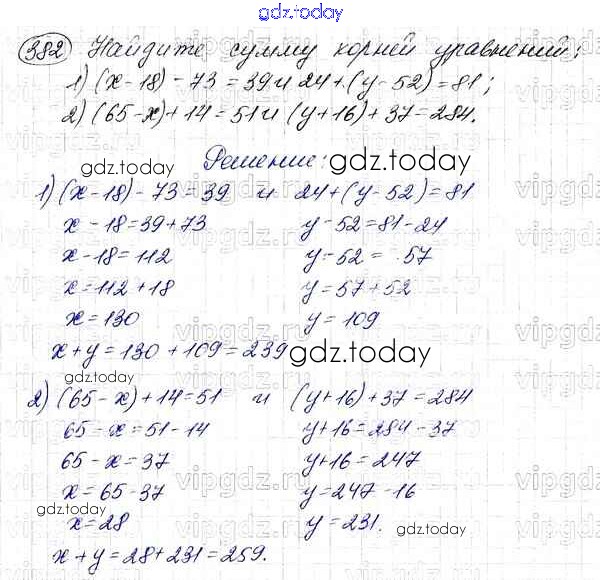 gdz.today
382 Найдите сумму корней уравнений:
1) (x-18)-73=39 и 24+(y-52)=81;
2) (65-x)+14=51 и (y+16)+37=284.
Решение:
gdz.today gdz.today
1) (x-18)-73=39 и 24+(y-52)=81
x-18=39+73 y-52=81-24
x-18=112 y-52=57
x=112+18 y=57+52
x=130 y=109
x+y=130+109=239 gdz.today
gdz.today
2) (65-x)+14=51 и (y+16)+37=284
65-x=51-14 y+16=284-37
65-x=37 y+16=247
x=65-37 y=247-16
x=28 y=231. gdz.today
gdz.today
x+y=28+231=259.
vipgdz.ru